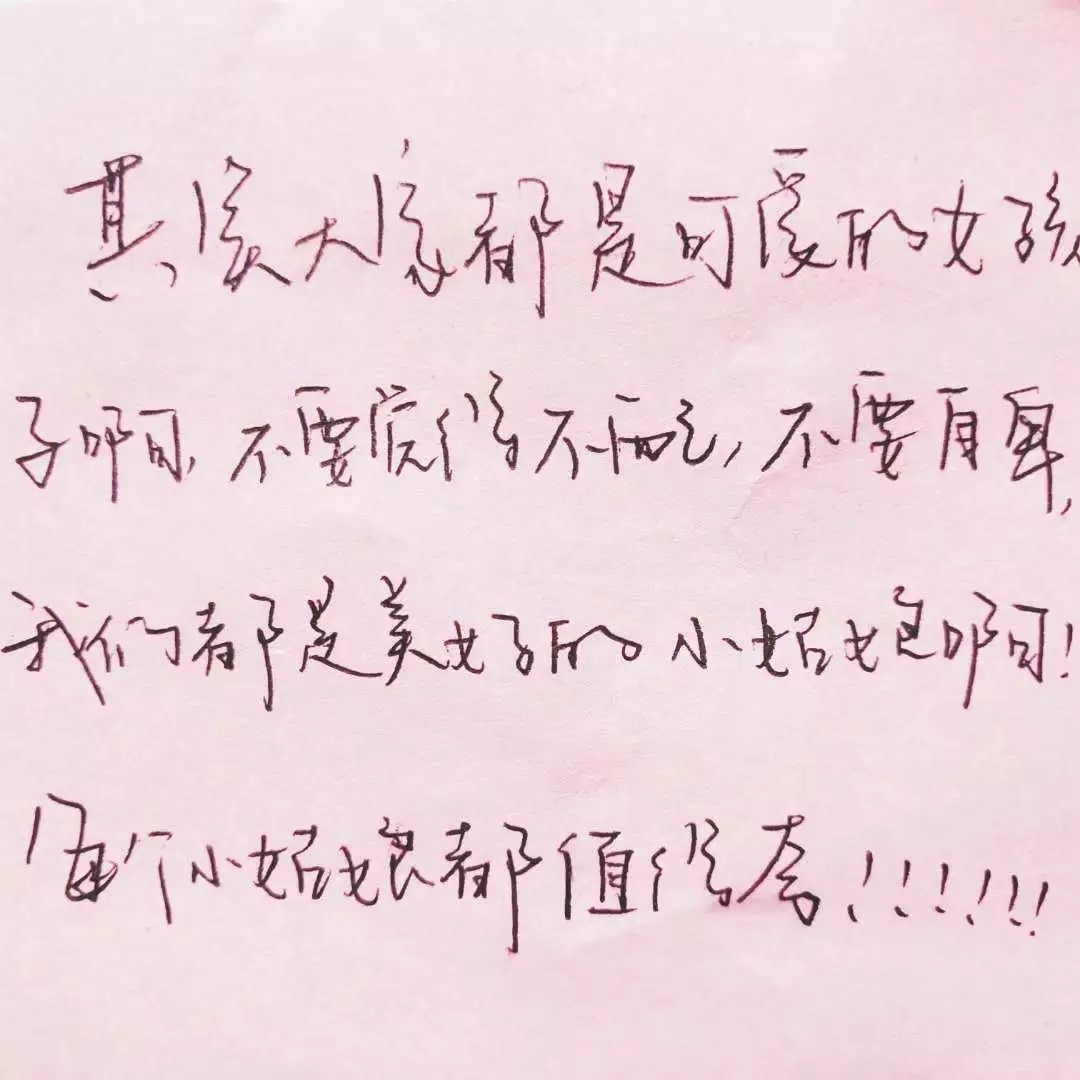 其实大家都是可爱的女孩
子啊,不要觉得不配,不要自卑,
我们都是美好的小姑娘啊!
每个小姑娘都值得夸!!!!!!